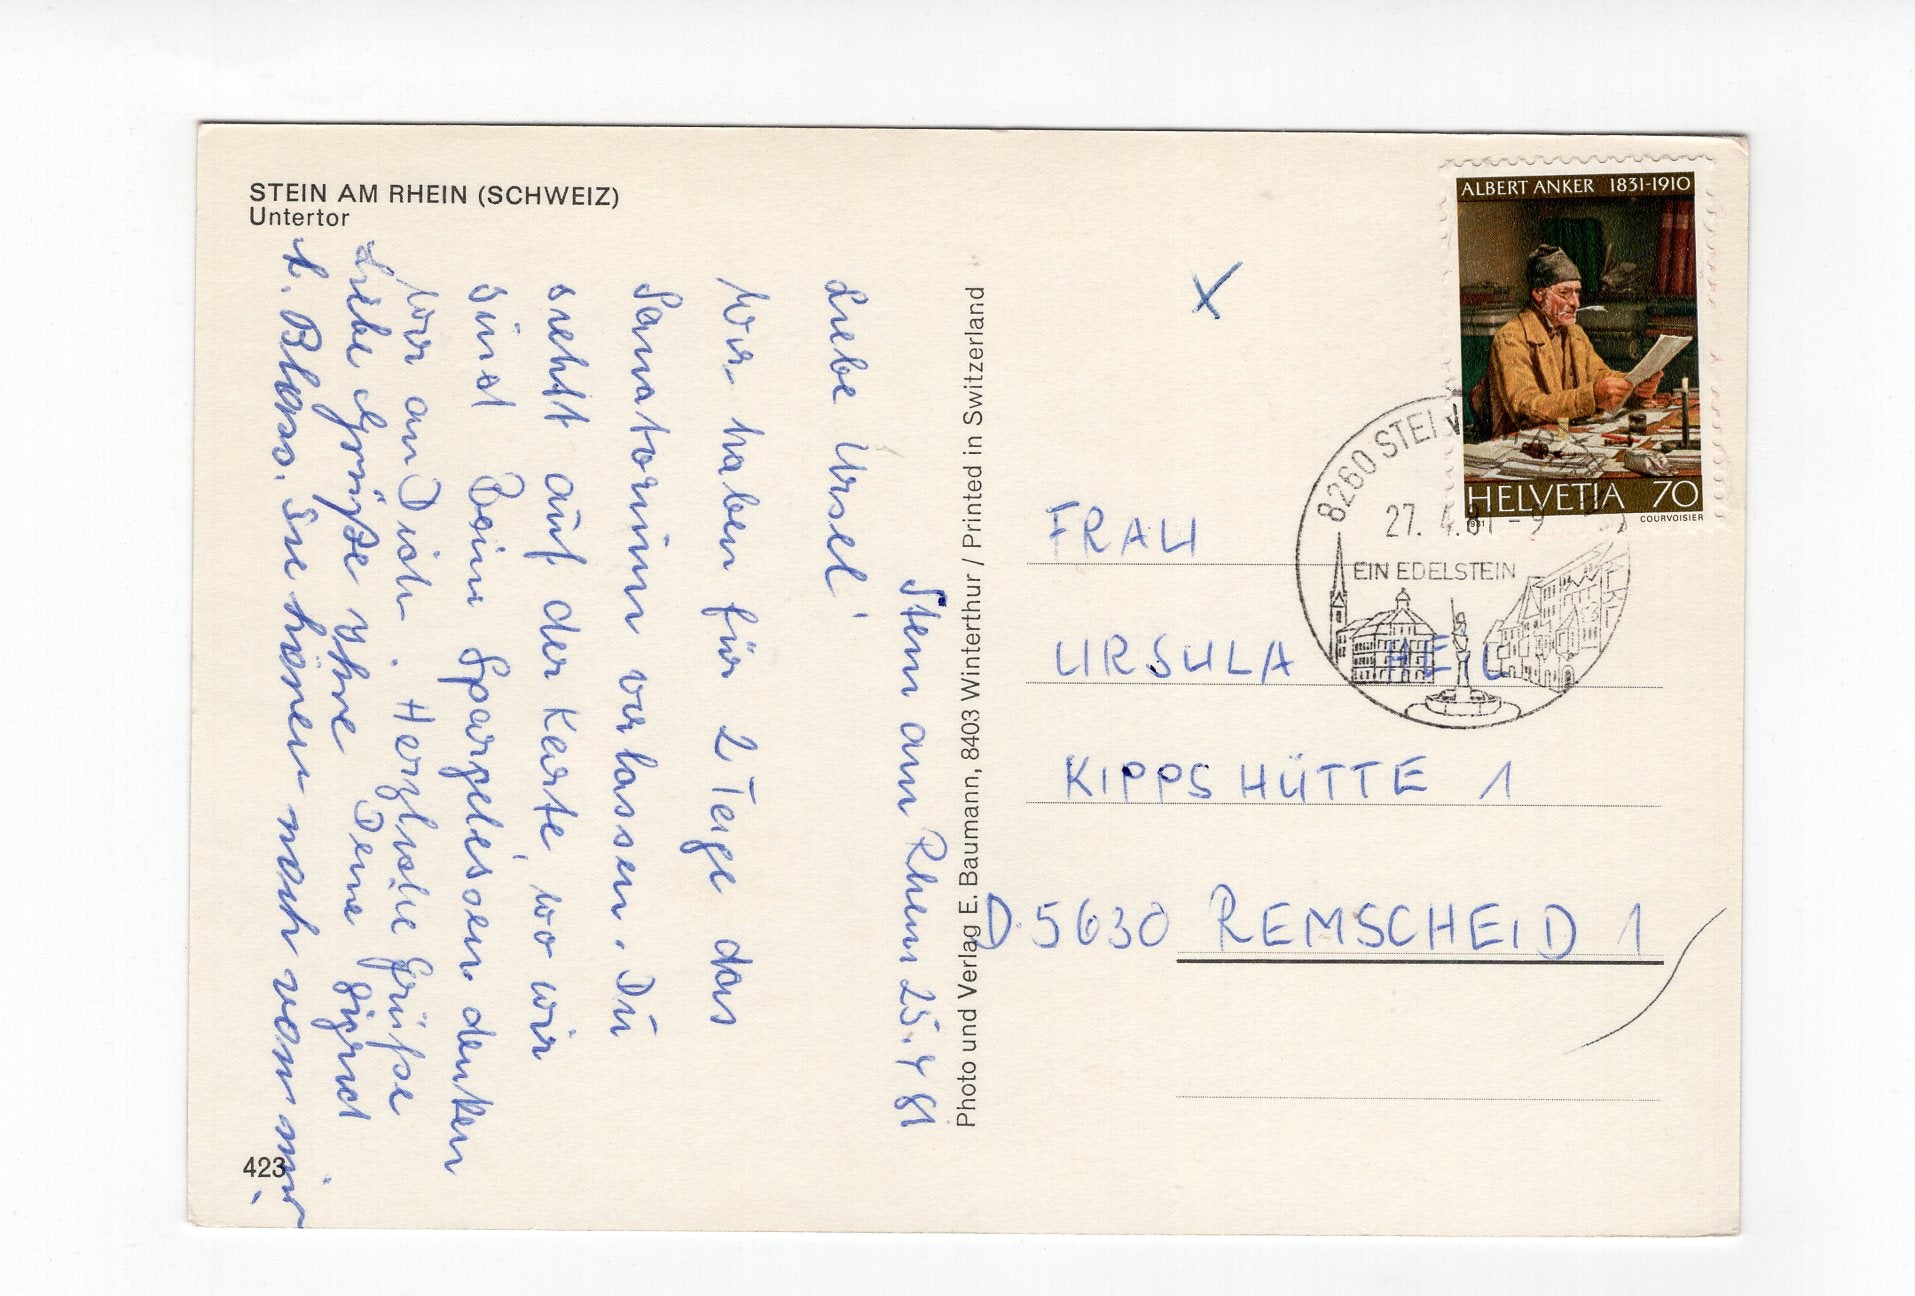 STEIN AM RHEIN (SCHWEIZ)
Untertor
Stein am Rhein 25.4 81
Liebe Ursel!
Wir haben für 2 Tage das
Sanatorium verlassen. Du
siehst auf der Karte, wo wir
sind Beim Spargelessen denken
wir an Dich. Herzliche Grüße
Liebe Grüße Ihre Deine Sigrid
Sie hören noch von mir
423
Photo und Verlag E. Baumann, 8403 Winterthur / Printed in Switzerland
X
ALBERT ANKER 1831-1910
HELVETIA 70
1981 COURVOISIER
8260 STEIN
27. 4. 81 - 9
EIN EDELSTEIN
FRAU
URSULA HEIL
KIPPSHÜTTE 1
D 5630 REMSCHEID 1